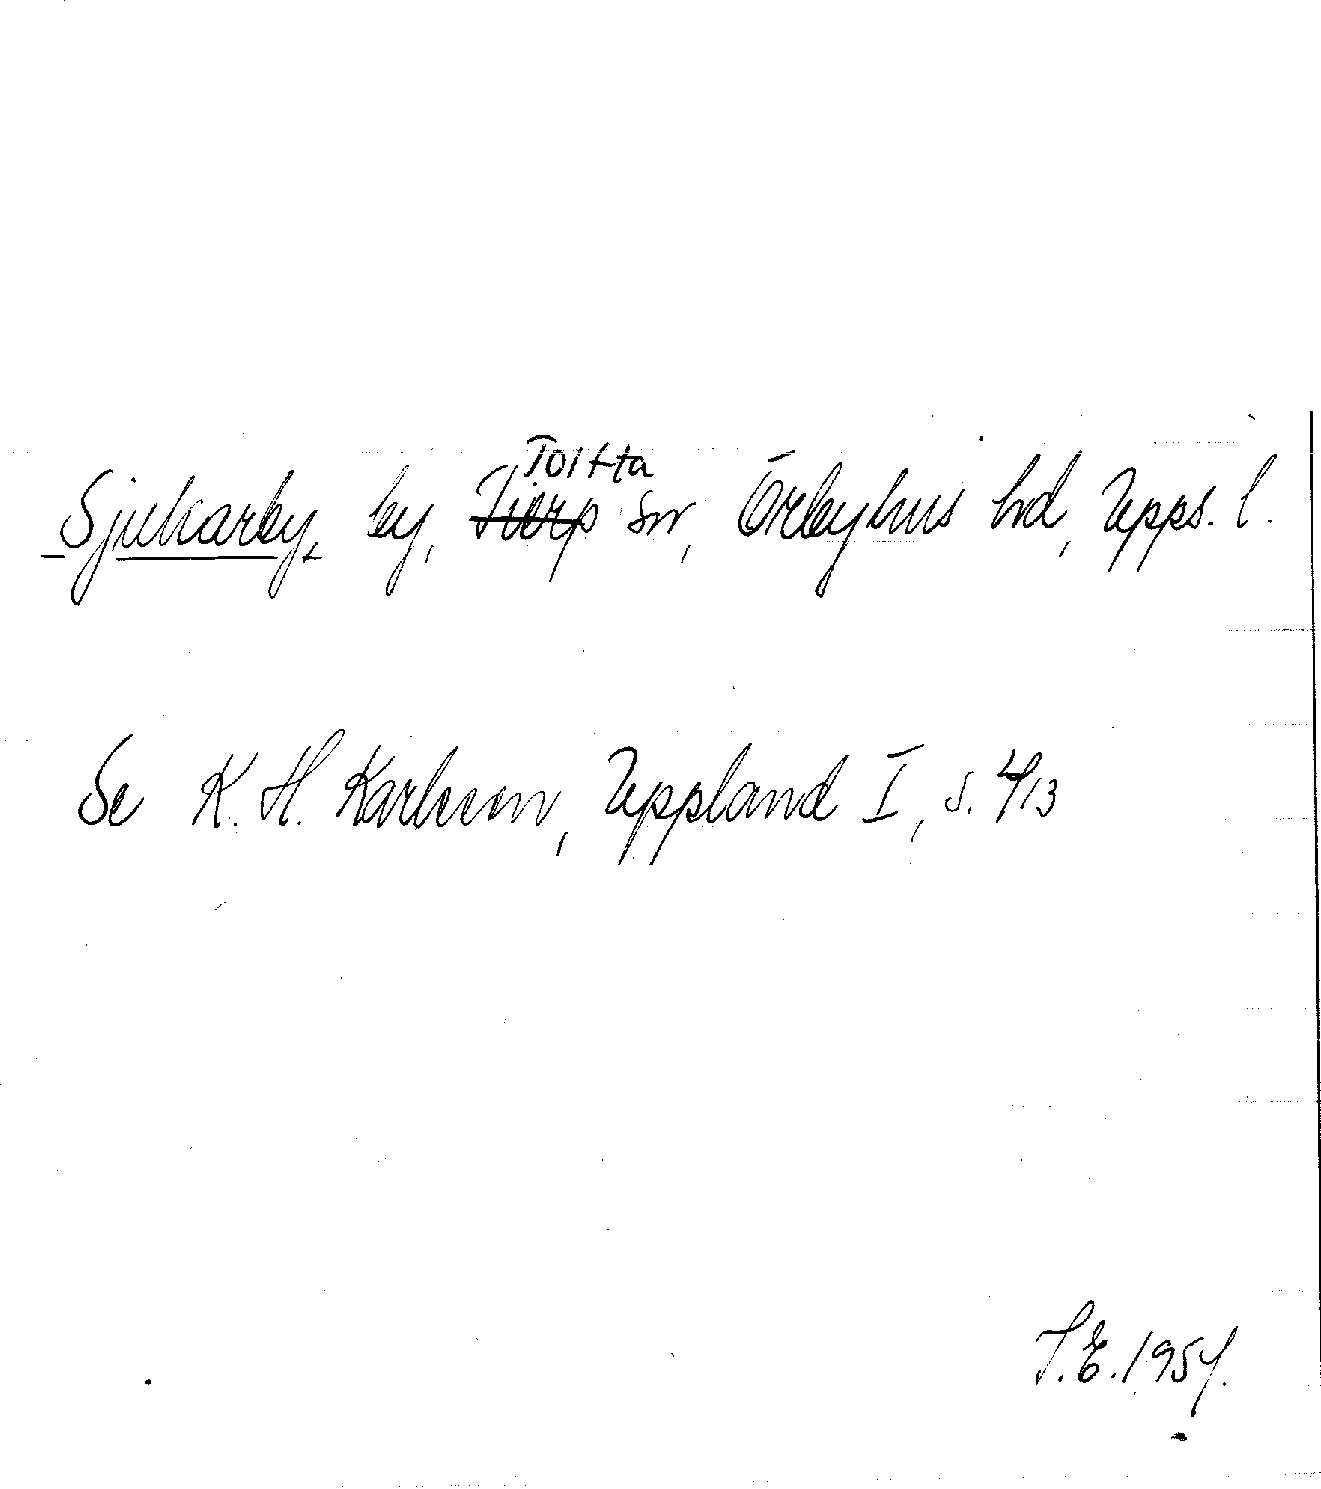 Sjukarby, by, Tierp Tolfta sn, Örbyhus hd, Upps. l.
Se K. H. Karlsson, Uppland I, s. 413